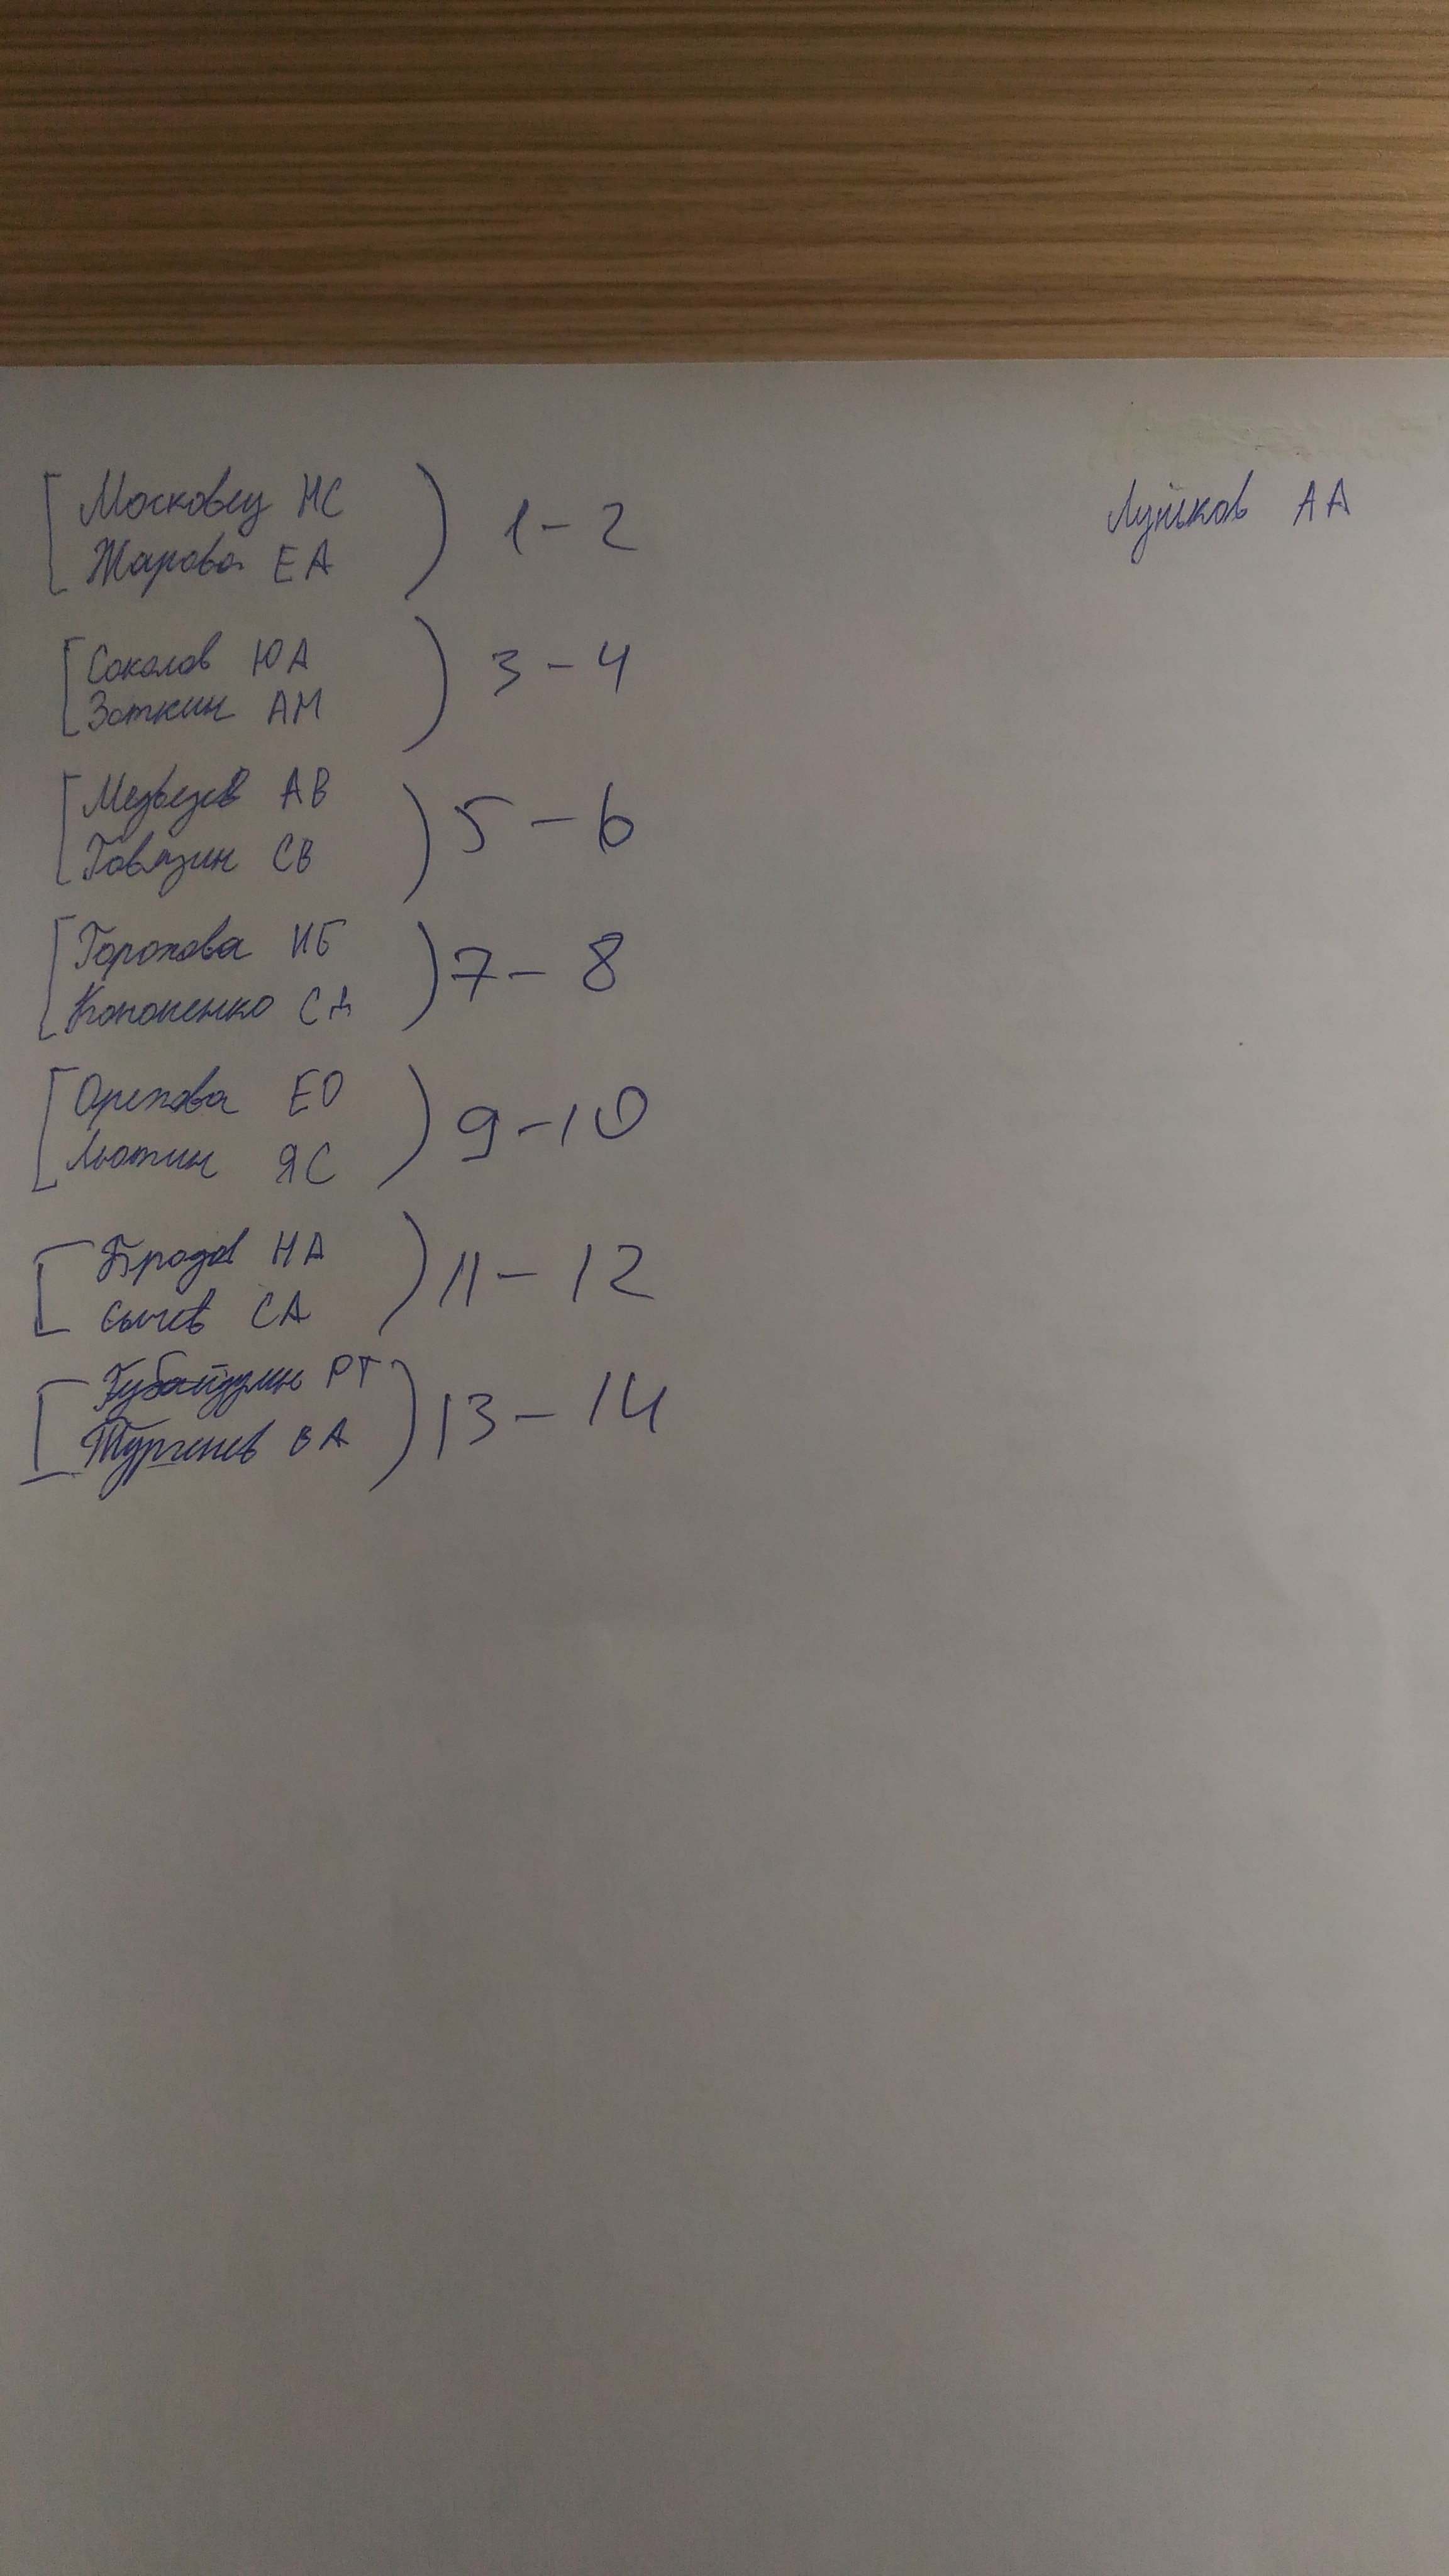 Московец НС
Жарова ЕА
1 - 2
Соколов ЮА
Заткин АМ
3 - 4
Медведев АВ
Говязин СВ
5 - 6
Горохова ИБ
Кононенко СД
7 - 8
Орехова ЕО
Лютин ЯС
9 - 10
Бродов НА
Сычев СА
11 - 12
Губайдулин РТ
Тургенев ВА
13 - 14
АА